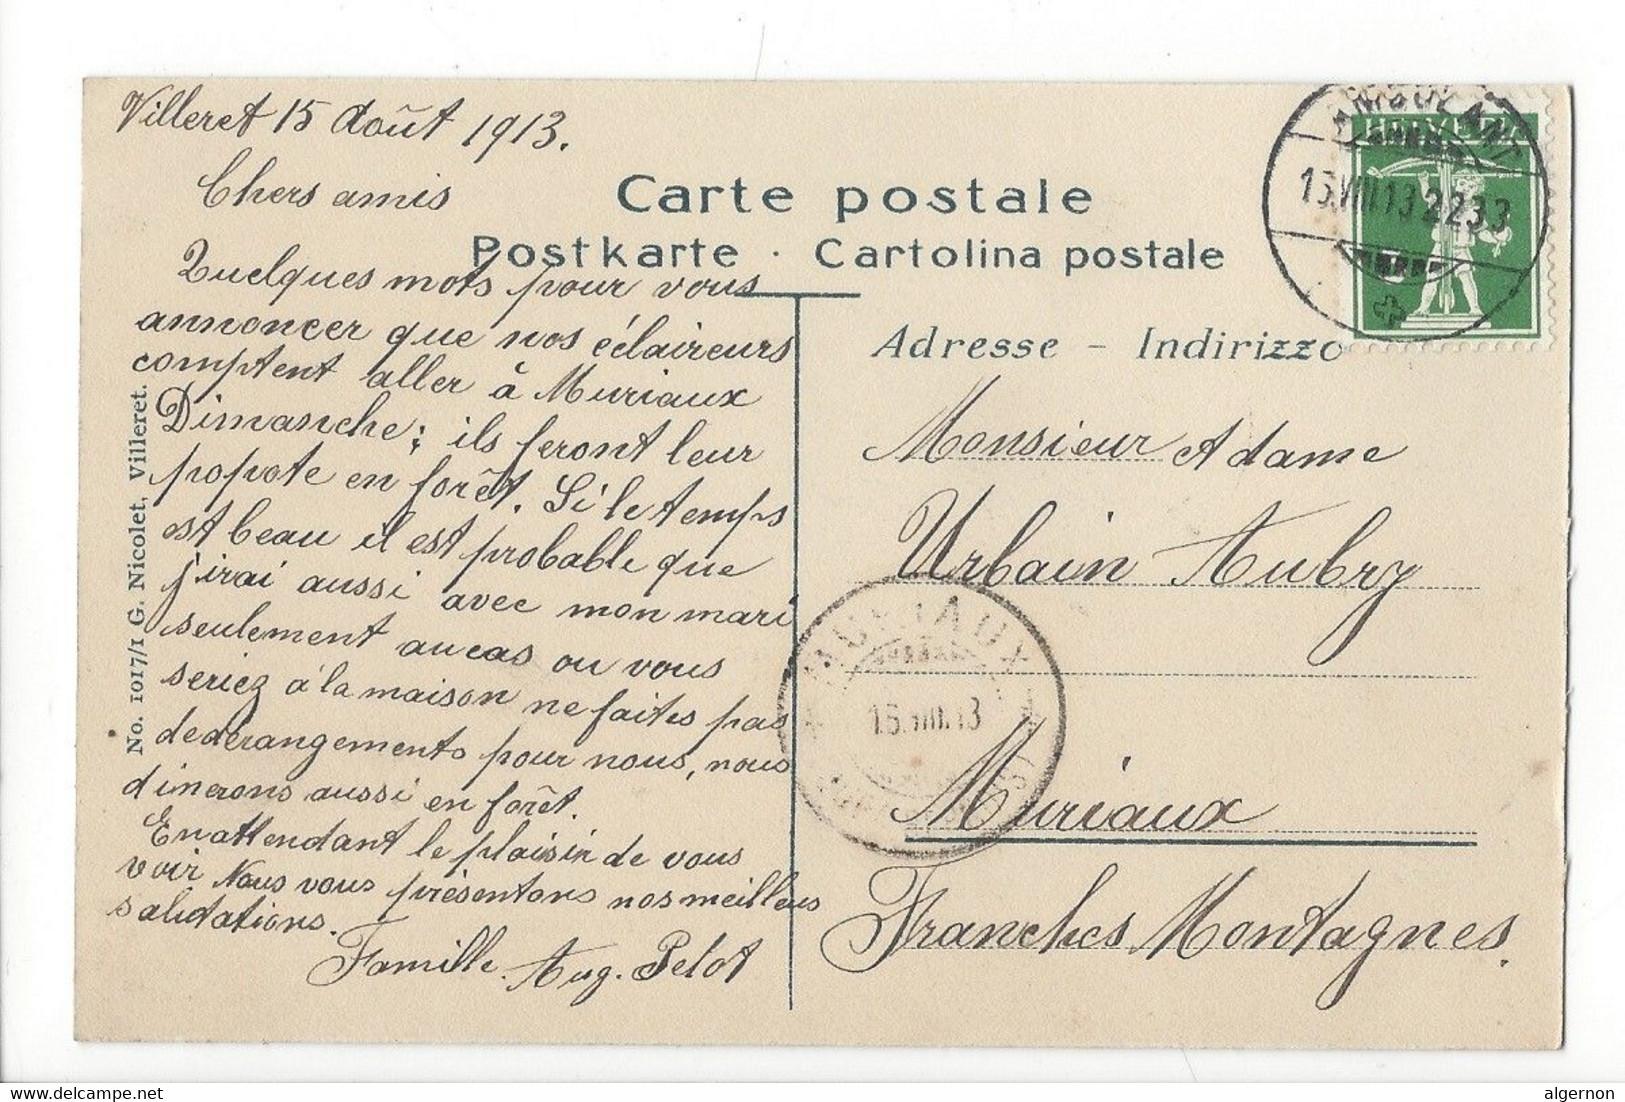 Villeret 15 Août 1913.
Chers amis
Quelques mots pour vous
annoncer que nos éclaireurs
comptent aller à Muriaux
Dimanche; ils feront leur
popote en forêt. Si le temps
est beau il est probable que
j'irai aussi avec mon mari
seulement au cas ou vous
seriez à la maison ne faites pas
de dérangements pour nous, nous
dinerons aussi en forêt.
En attendant le plaisir de vous
voir Nous vous présentons nos meilleus
salutations.
Famille Aug. Pelot
No. 1017/1 G. Nicolet, Villeret.
Carte postale
Postkarte · Cartolina postale
Adresse – Indirizzo
AMBULANT
15.VIII.13 22 33
HELVETIA
Monsieur & dame
Urbain Aubry
MURIAUX
16.VIII.13
Muriaux
Franches Montagnes.
www.delcampe.net
algernon